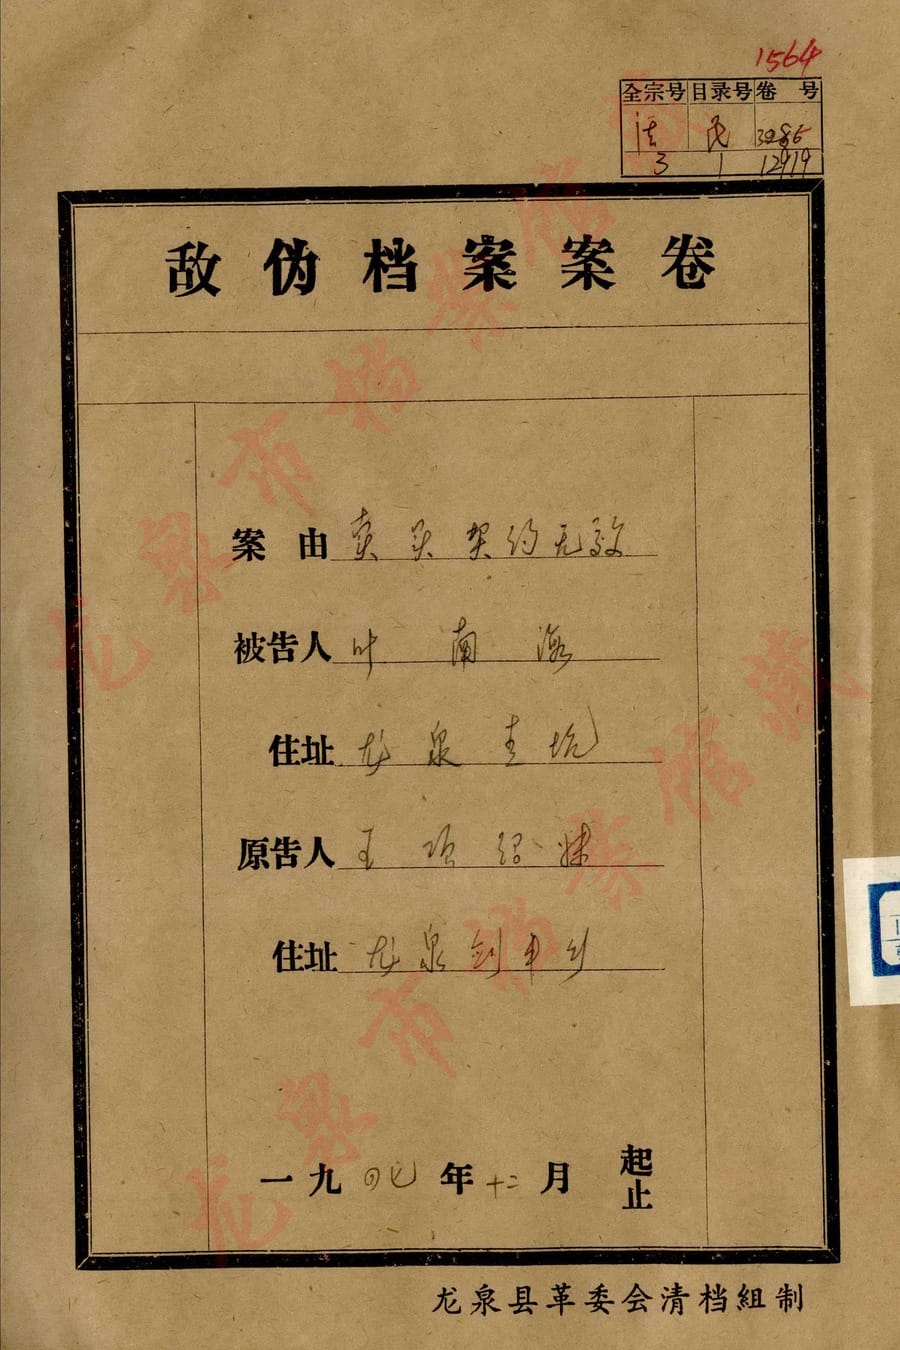 1564
全宗号 目录号 卷 号
法 民 3285
3 1 12919
敌伪档案案卷
案由 卖买契约无效
被告人 叶南海
住址 龙泉圭坑
原告人 王项绍妹
住址 龙泉剑中乡
一九四七年十二月 起
止
龙泉县革委会清档組制
龙泉市档案馆藏
龙泉市档案馆藏